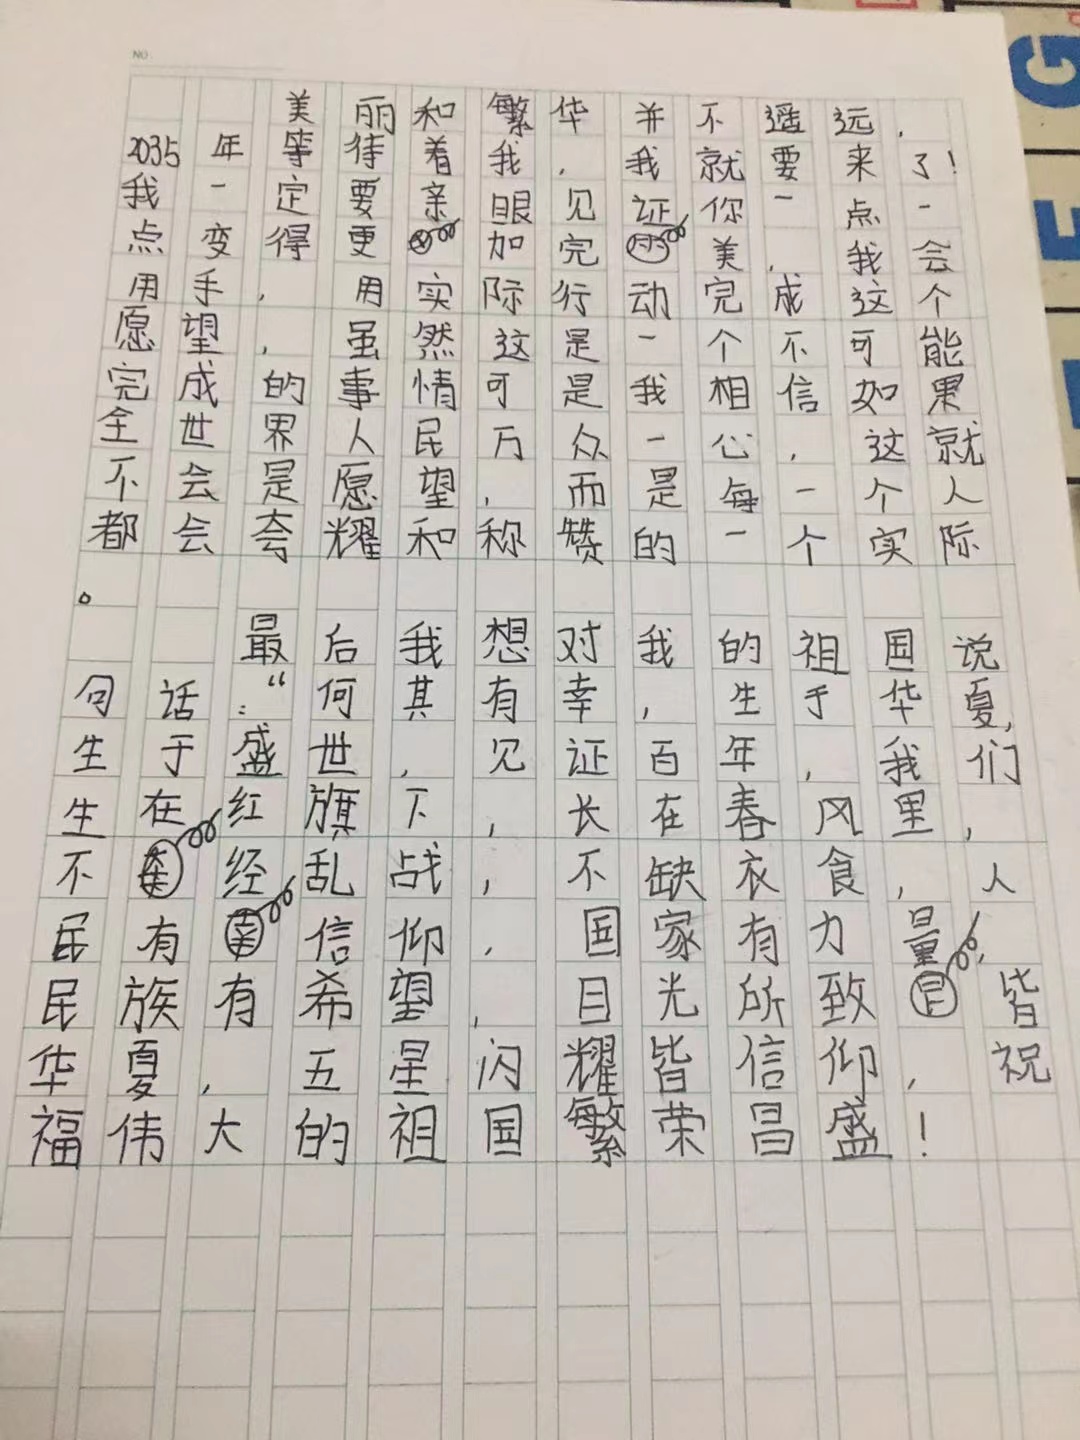 NO
G
E
美丽和繁华并不遥远,
2035年等待着我,我就要来了!
我一定要亲眼见证你一点一
点变得更加完美,我会
用手,用实际行动完成这个
愿望,虽然这是一个不可能
完成的事情可是我相信如果
全世界人民万众一心,这就
不会是愿望,而是每一个人
都会夸耀和称赞的一个实际
。
最后我想对我的祖国说
句话:“何其有幸,生于华夏,
生于盛世,见证百年,我们
生在红旗下,长在春风里,
不经乱战,不缺衣食,人
民有信仰,国家有力量,
民族有希望,目光所致皆
华夏,五星闪耀皆信仰,祝
福伟大的祖国繁荣昌盛!